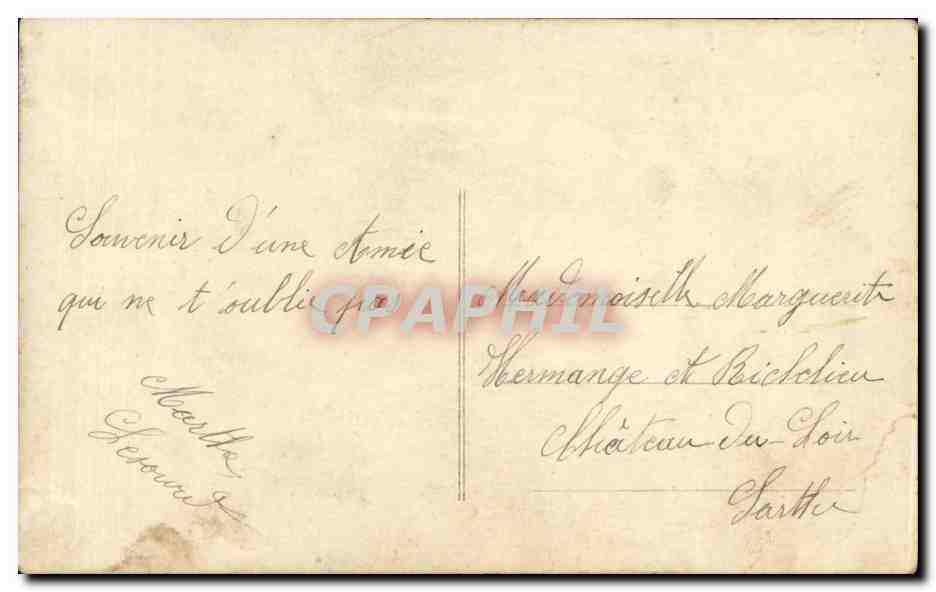 Souvenir d'une Amie
qui ne t'oublie pas
Marthe
CPAPHIL
Mademoiselle Marguerite
Hermange et Richelieu
Château-du-Loir
Sarthe